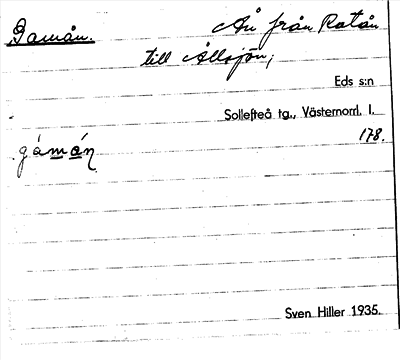 Gamån. Å från Rotån
till Ållsjön,
Eds s:n
Sollefteå tg., Västernorrl. l.
178.
gámán
Sven Hiller 1935.